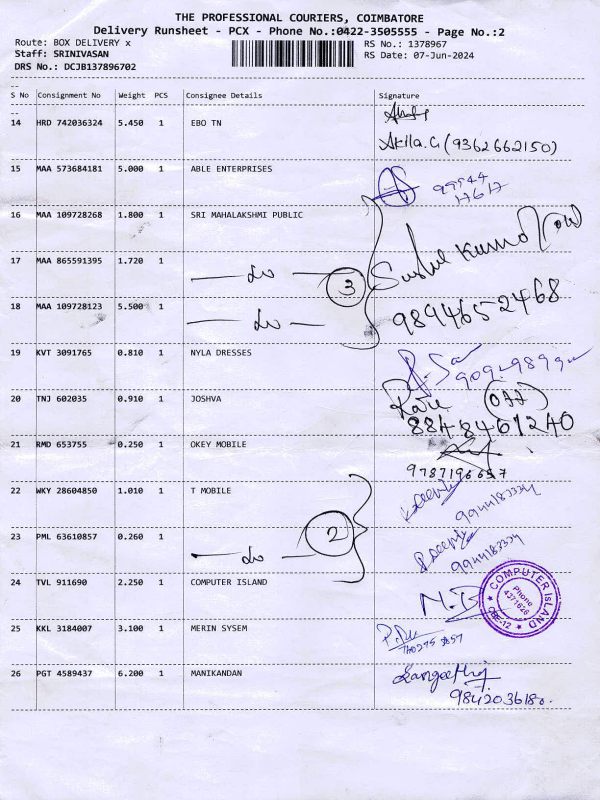 THE PROFESSIONAL COURIERS, COIMBATORE
Delivery Runsheet - PCX - Phone No.:0422-3505555 - Page No.:2
Route: BOX DELIVERY x
RS No.: 1378967
Staff: SRINIVASAN
RS Date: 07-Jun-2024
DRS No.: DCJB137896702
S No Consignment No Weight PCS Consignee Details Signature
14 HRD 742036324 5.450 1 EBO TN
Akila.G (9362662150)
15 MAA 573684181 5.000 1 ABLE ENTERPRISES
99544
17617
16 MAA 109728268 1.800 1 SRI MAHALAKSHMI PUBLIC
17 MAA 865591395 1.720 1 — do —
3
Sushil Kumar
18 MAA 109728123 5.500 1 — do —
9894652468
19 KVT 3091765 0.810 1 NYLA DRESSES
20 TNJ 602035 0.910 1 JOSHVA
8848461240
21 RMD 653755 0.250 1 OKEY MOBILE
9787196657
22 WKY 28604850 1.010 1 T MOBILE
9944183334
2
23 PML 63610857 0.260 1 — do —
9944183334
24 TVL 911690 2.250 1 COMPUTER ISLAND
COMPUTER ISLAND
Phone
4371626
CBE-12
25 KKL 3184007 3.100 1 MERIN SYSEM
26 PGT 4589437 6.200 1 MANIKANDAN
Sangeetha
9842036180.